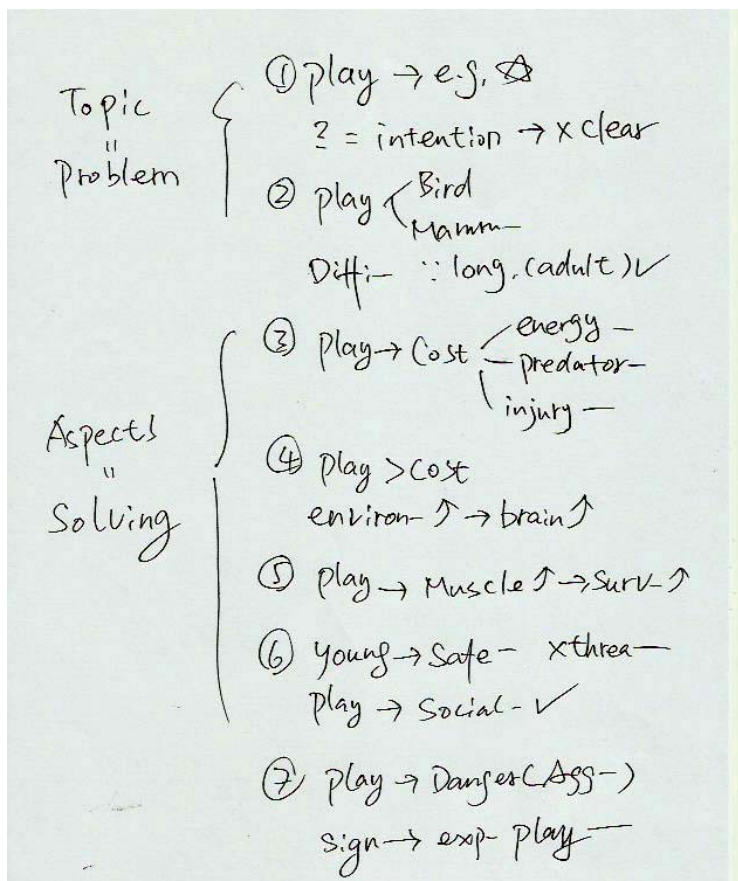 Topic
"
Problem
① play → e.g. ☆
? = intention → x clear
② play < Bird
Mamm—
Diffi— ∵ long. (adult) ✓
Aspects
"
Solving
③ play → Cost energy —
predator —
injury —
④ play > cost
environ- ↑ → brain ↑
⑤ play → Muscle ↑ → Surv- ↑
⑥ young → Safe - xthrea—
play → Social - ✓
⑦ play → Danger (Agg-)
sign → exp- play —